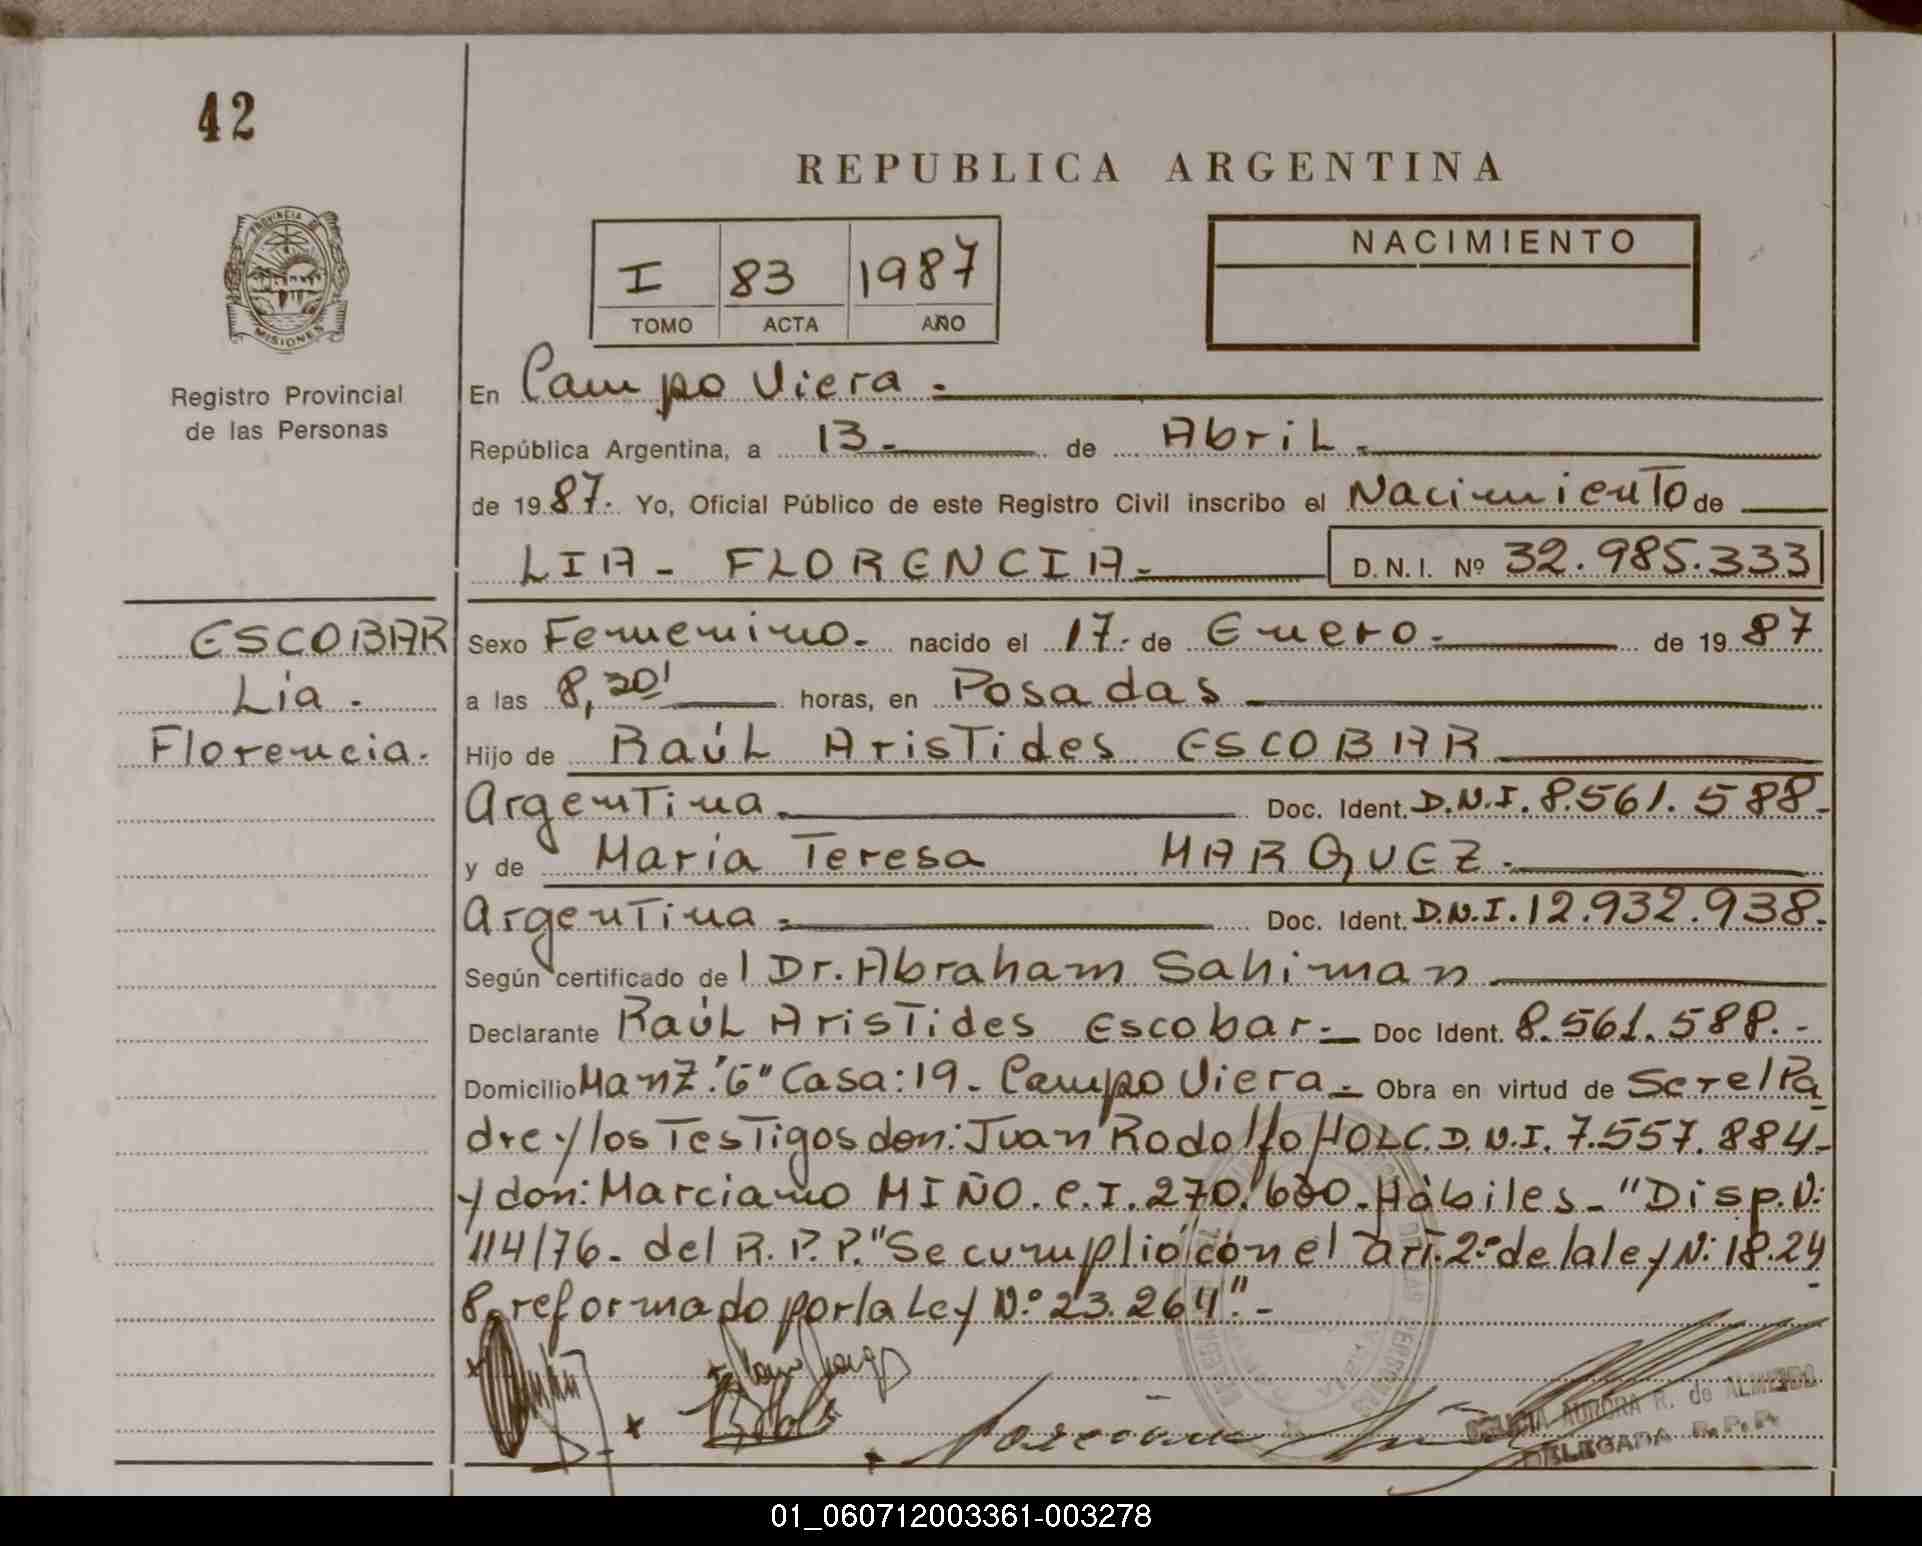 42
REPUBLICA ARGENTINA
PROVINCIA DE
MISIONES
Registro Provincial
de las Personas
I 83 1987
TOMO ACTA AÑO
NACIMIENTO
En Campo Viera.
República Argentina, a 13. de Abril.
de 1987. Yo, Oficial Público de este Registro Civil inscribo el Nacimiento de
LIA - FLORENCIA.
D.N.I. Nº 32.985.333
ESCOBAR
Lía.
Florencia.
Sexo Femenino. nacido el 17. de Enero. de 1987
a las 8, horas, en Posadas
Hijo de Raúl Aristides ESCOBAR
Argentina. Doc. Ident. D.N.I. 8.561.588-
y de María Teresa MARQUEZ.
Argentina. Doc. Ident. D.N.I. 12.932.938.
Según certificado de Dr. Abraham Sahiman
Declarante Raúl Aristides Escobar. Doc Ident. 8.561.588.-
Domicilio Manz. Casa: 19. Campo Viera. Obra en virtud de Ser el Pa
dre y los Testigos don: Juan Rodolfo D.N.I. 7.557.884-
y don: Marciano MIÑO. C.I. 270. Hábiles - "Disp. N:
114/76. del R.P.P. "Se cumplió con el art. 2º de la ley N: 18.24
8. reformado por la Ley N.º 23.264".-
AURORA R. de ALMEIDA
DELEGADA R.P.P.
01_060712003361-003278